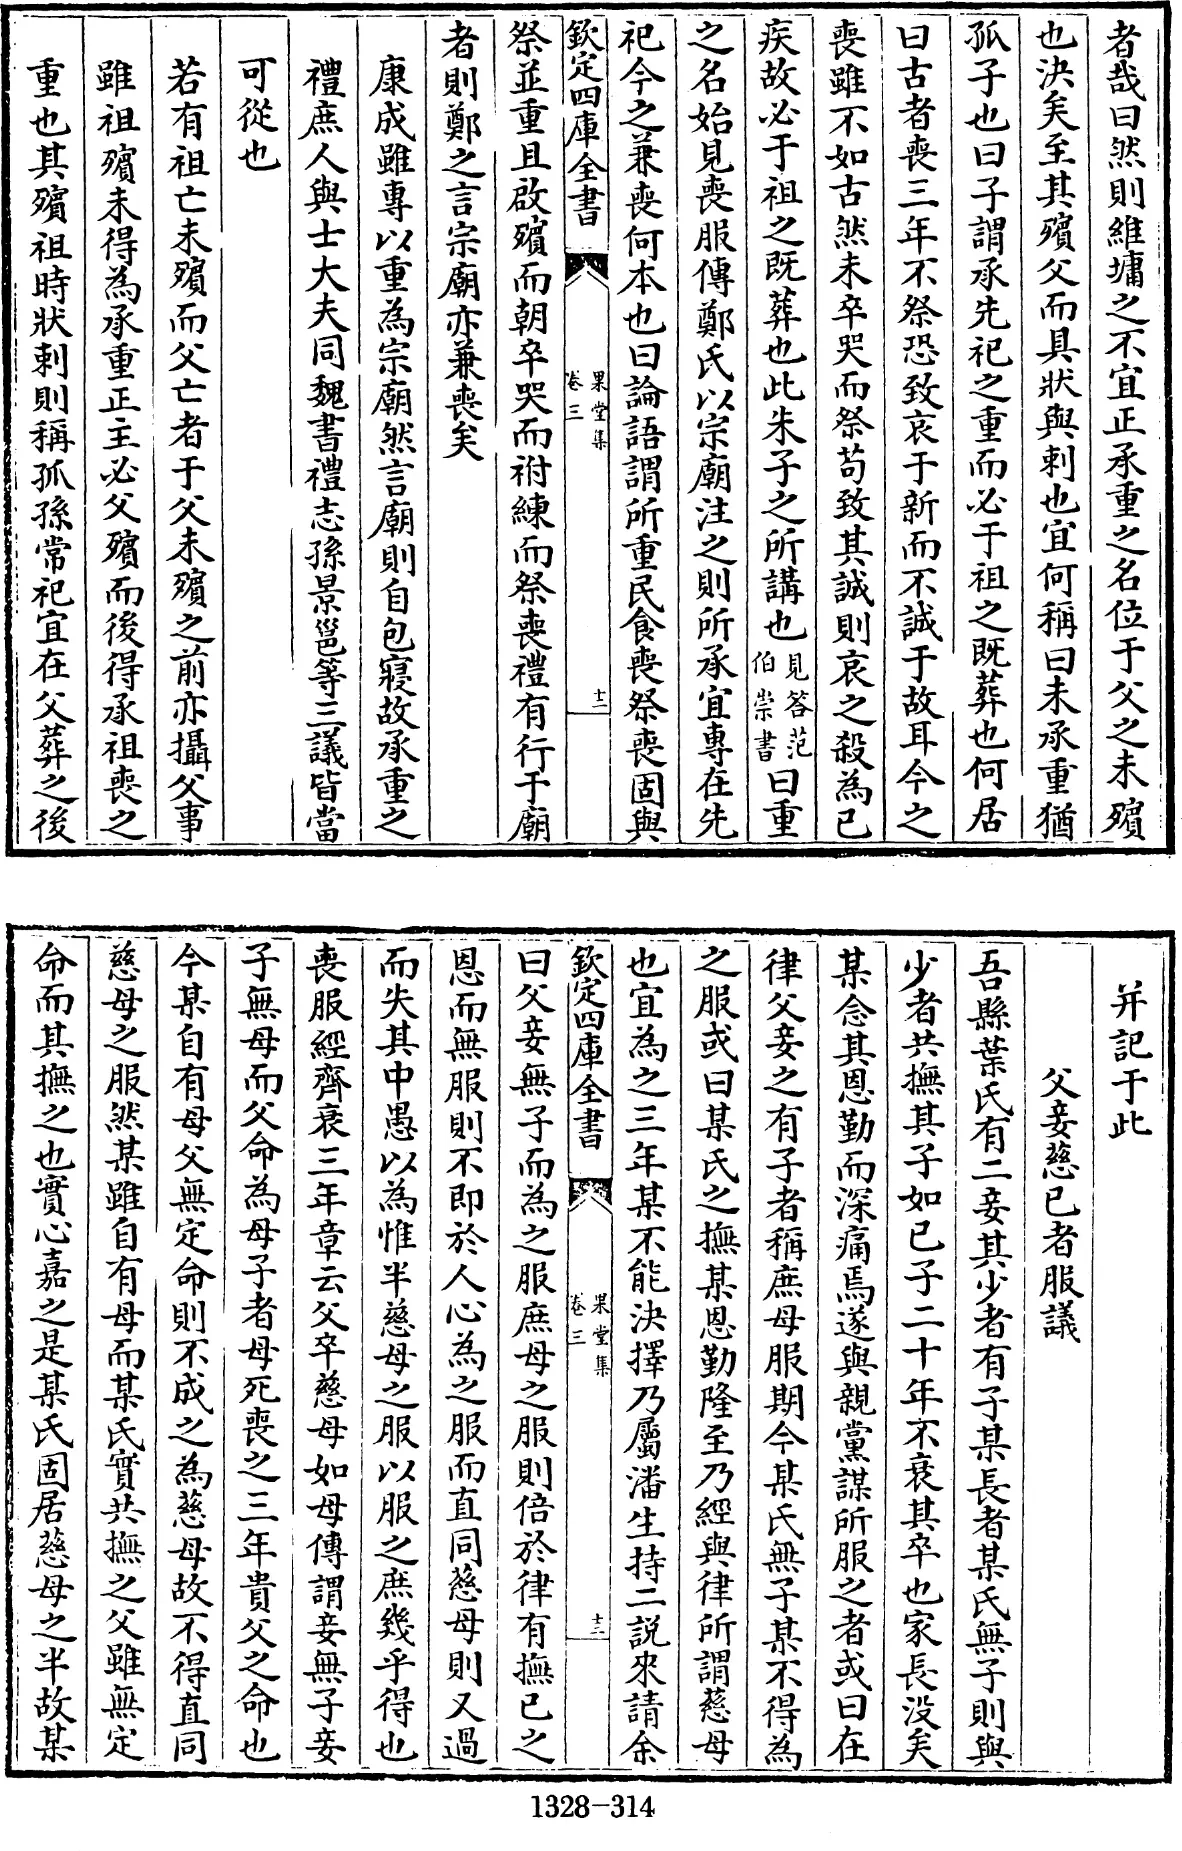 者哉曰然則維墉之不宜正承重之名位于父之未殯
也決矣至其殯父而具狀與刺也宜何稱曰未承重猶
孤子也曰子謂承先祀之重而必于祖之既葬也何居
曰古者喪三年不祭恐致哀于新而不誠于故耳今之
喪雖不如古然未卒哭而祭苟致其誠則哀之殺為已
疾故必于祖之既葬也此朱子之所講也見答范伯崇書曰重
之名始見喪服傳鄭氏以宗廟注之則所承宜專在先
祀今之兼喪何本也曰論語謂所重民食喪祭喪固與
欽定四庫全書
果堂集
卷三
十二
祭並重且啟殯而朝卒哭而祔練而祭喪禮有行于廟
者則鄭之言宗廟亦兼喪矣
康成雖專以重為宗廟然言廟則自包寢故承重之
禮庶人與士大夫同魏書禮志孫景邕等三議皆當
可從也
若有祖亡未殯而父亡者于父未殯之前亦攝父事
雖祖殯未得為承重正主必父殯而後得承祖喪之
重也其殯祖時狀刺則稱孤孫常祀宜在父葬之後
并記于此
父妾慈已者服議
吾縣葉氏有二妾其少者有子某長者某氏無子則與
少者共撫其子如已子二十年不衰其卒也家長没矣
某念其恩勤而深痛焉遂與親黨謀所服之者或曰在
律父妾之有子者稱庶母服期今某氏無子某不得為
之服或曰某氏之撫某恩勤隆至乃經與律所謂慈母
也宜為之三年某不能決擇乃屬潘生持二説來請余
欽定四庫全書
果堂集
卷三
十三
曰父妾無子而為之服庶母之服則倍於律有撫已之
恩而無服則不即於人心為之服而直同慈母則又過
而失其中愚以為惟半慈母之服以服之庶幾乎得也
喪服經齊衰三年章云父卒慈母如母傳謂妾無子妾
子無母而父命為母子者母死喪之三年貴父之命也
今某自有母父無定命則不成之為慈母故不得直同
慈母之服然某雖自有母而某氏實共撫之父雖無定
命而其撫之也實心嘉之是某氏固居慈母之半故某
1328-314